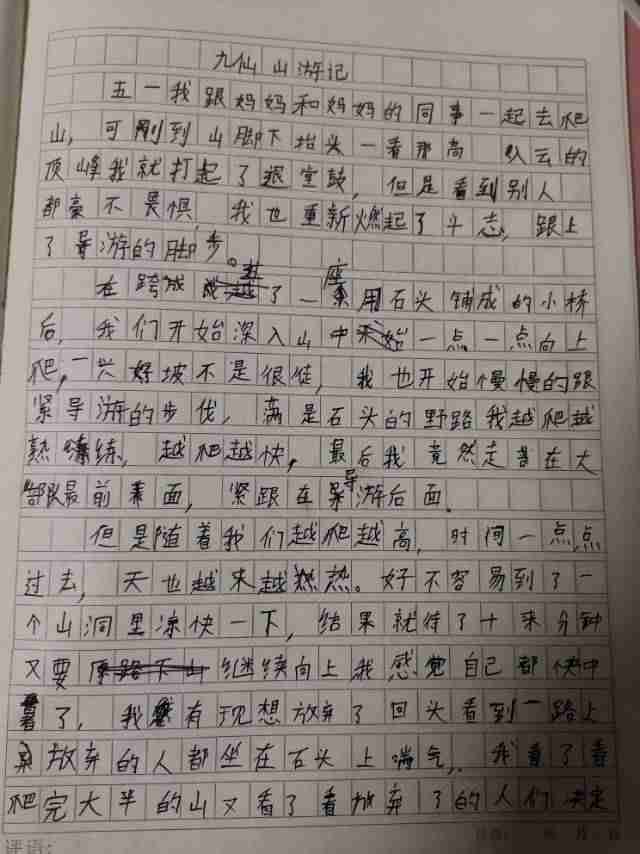 九仙山游记
五一我跟妈妈和妈妈的同事一起去爬
山，可刚到山脚下抬头一看那高 入云的
顶峰我就打起了退堂鼓，但是看到别人
都豪不畏惧 我也重新燃起了斗志，跟上
了导游的脚步。
在跨越了一座用石头铺成的小桥
后，我们开始深入山中开始一点一点向上
爬，一兴好坡不是很徒，我也开始慢慢的跟
紧导游的步伐，满是石头的野路我越爬越
熟练，越爬越快，最后我竟然走在大
部队最前面，紧跟在导游后面.
但是随着我们越爬越高，时间一点点
过去，天也越来越热。好不容易到了一
个山洞里凉快一下，结果就待了十来分钟
又要继续向上我感觉自己都快中
暑了，我有现想放弃了回头看到一路上
放弃的人都坐在石头上喘气，我看了看
爬完大半的山又看了看放弃了的人们决定
评语：